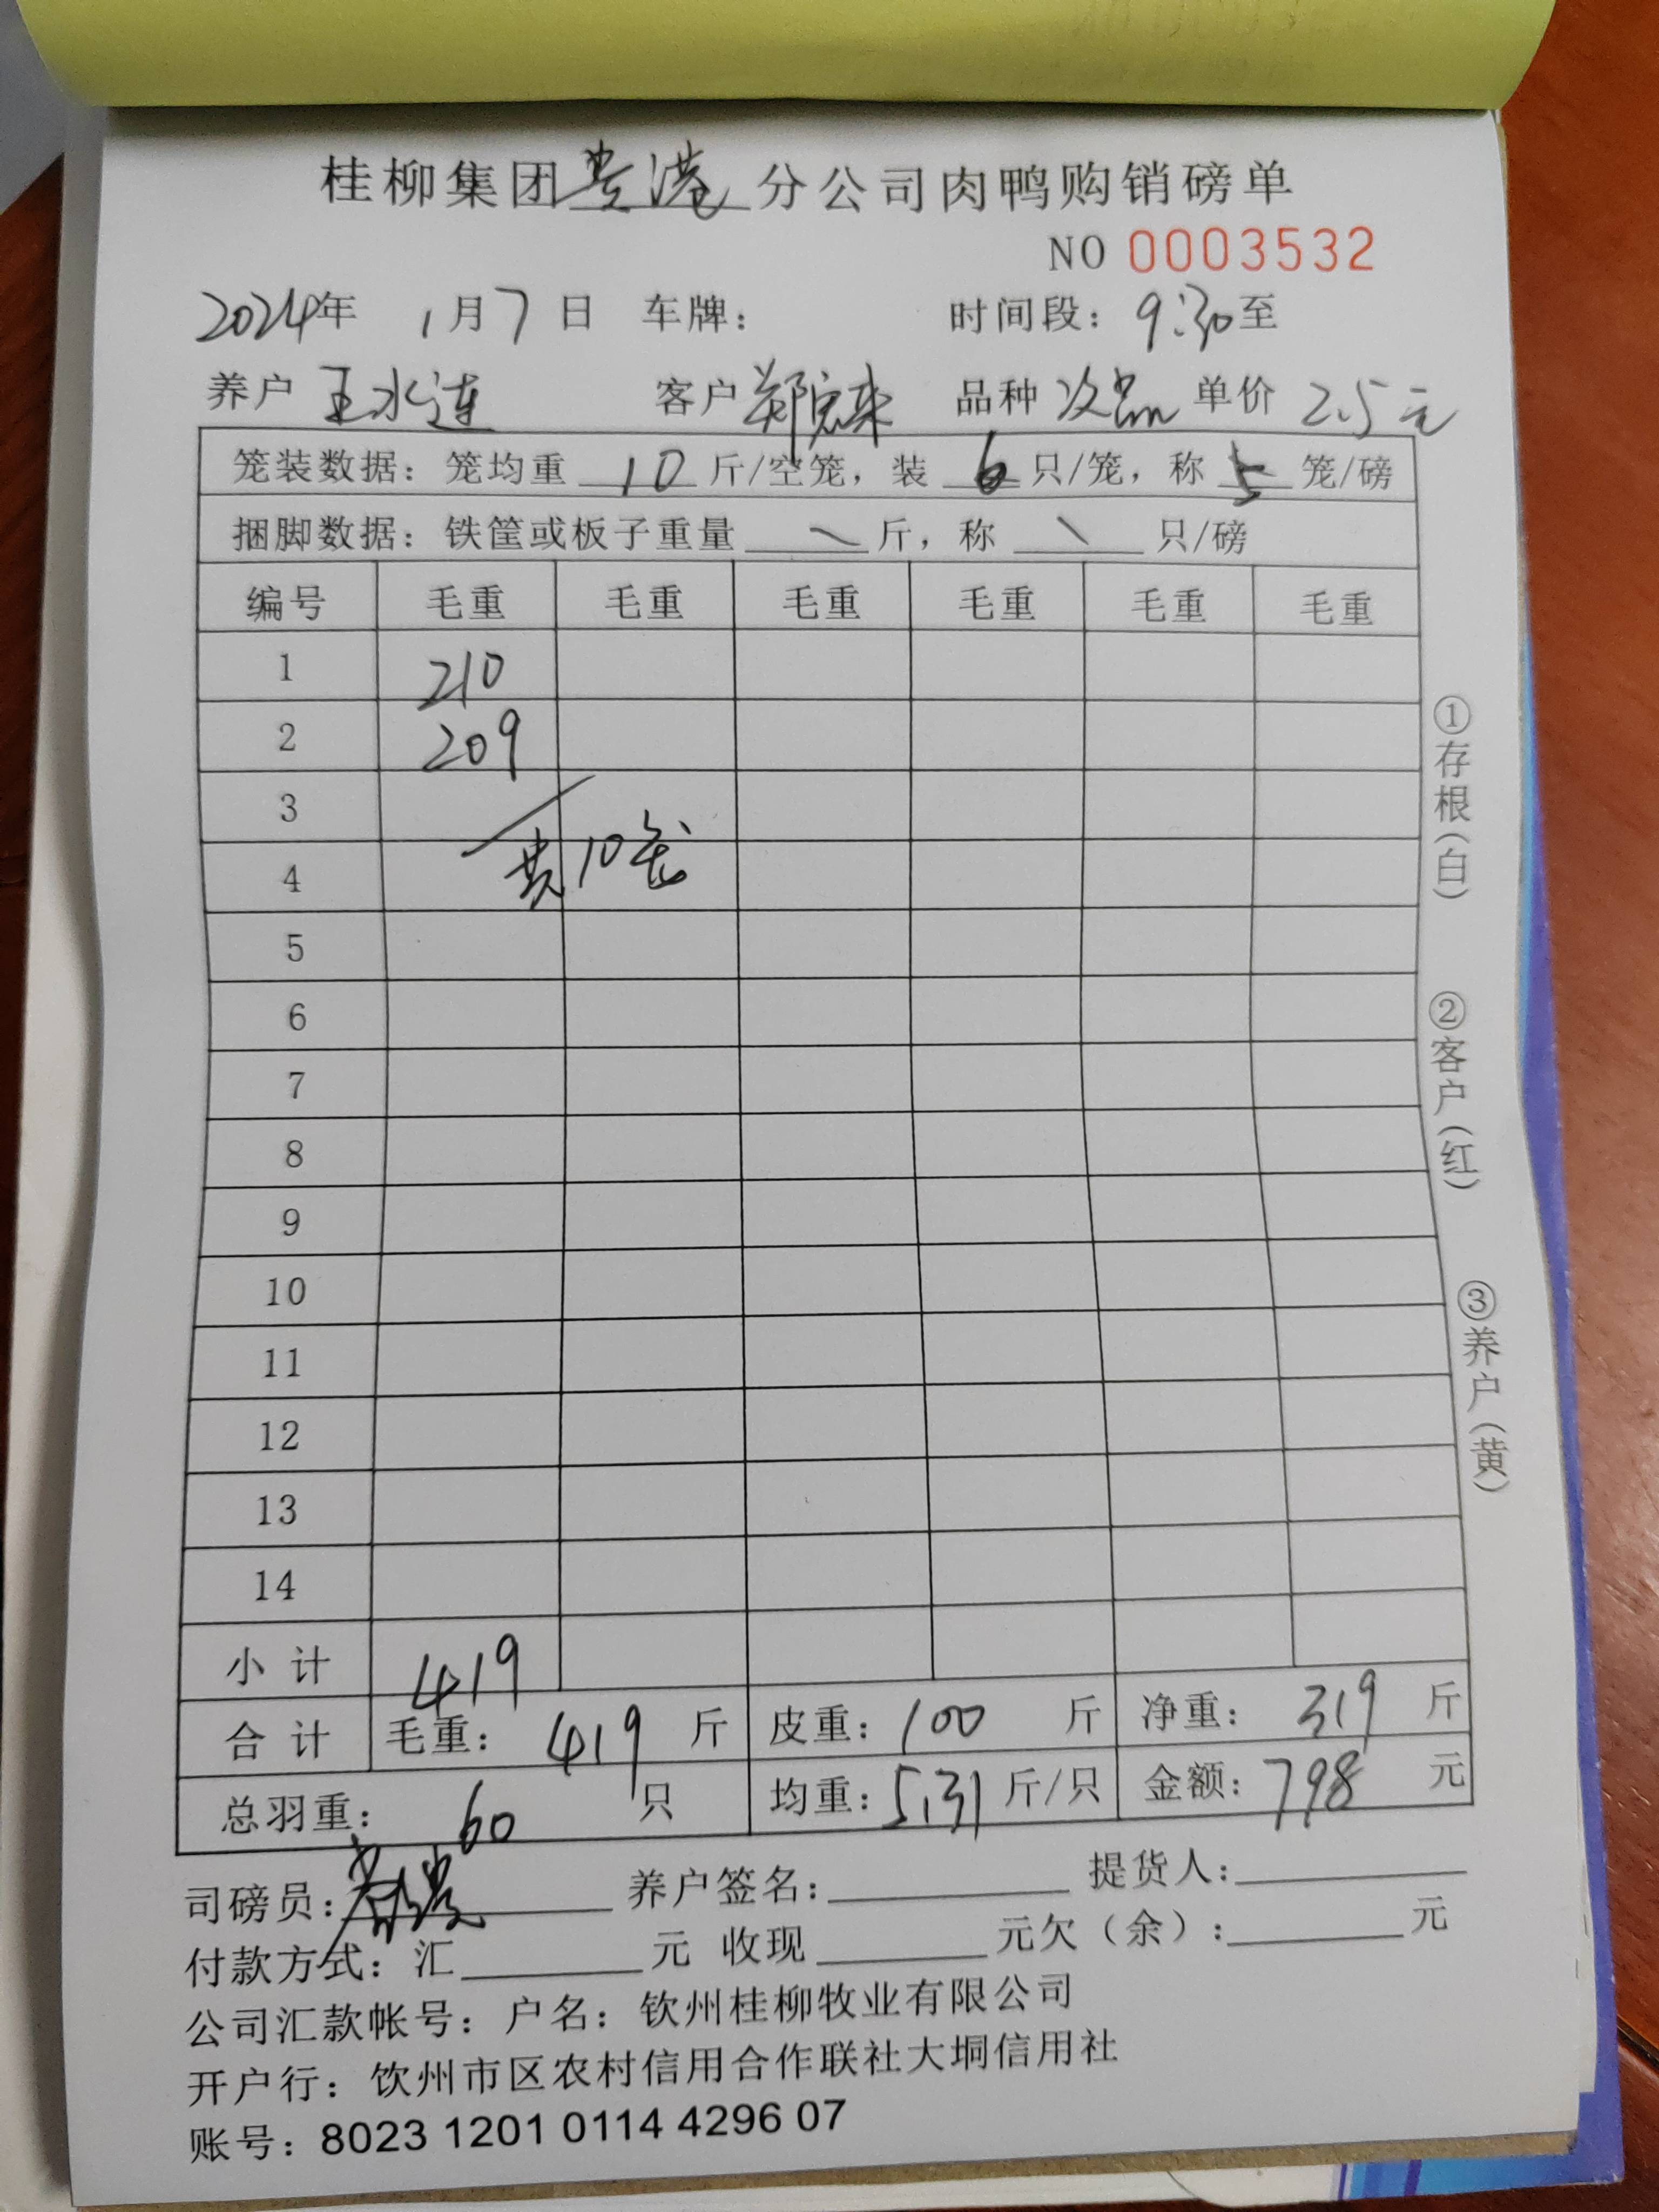 桂柳集团贵港分公司肉鸭购销磅单
NO 0003532
2024年 1月7日 车牌： 时间段：9:30至
养户 王水连 客户 郑 来 品种 次品 单价 2.5元
笼装数据：笼均重 10 斤/空笼，装 6 只/笼，称 5 笼/磅
捆脚数据：铁筐或板子重量 \ 斤，称 \ 只/磅
编号 毛重 毛重 毛重 毛重 毛重 毛重
1 210
2 209
3
4 共10笼
5
6
7
8
9
10
11
12
13
14
小计 419
合计 毛重：419 斤 皮重：100 斤 净重：319 斤
总羽重：60 只 均重：5.31 斤/只 金额：798 元
司磅员： 养户签名： 提货人：
付款方式：汇 元 收现 元欠（余）： 元
公司汇款帐号：户名：钦州桂柳牧业有限公司
开户行：饮州市区农村信用合作联社大垌信用社
账号：8023 1201 0114 4296 07
①存根（白）
②客户（红）
③养户（黄）